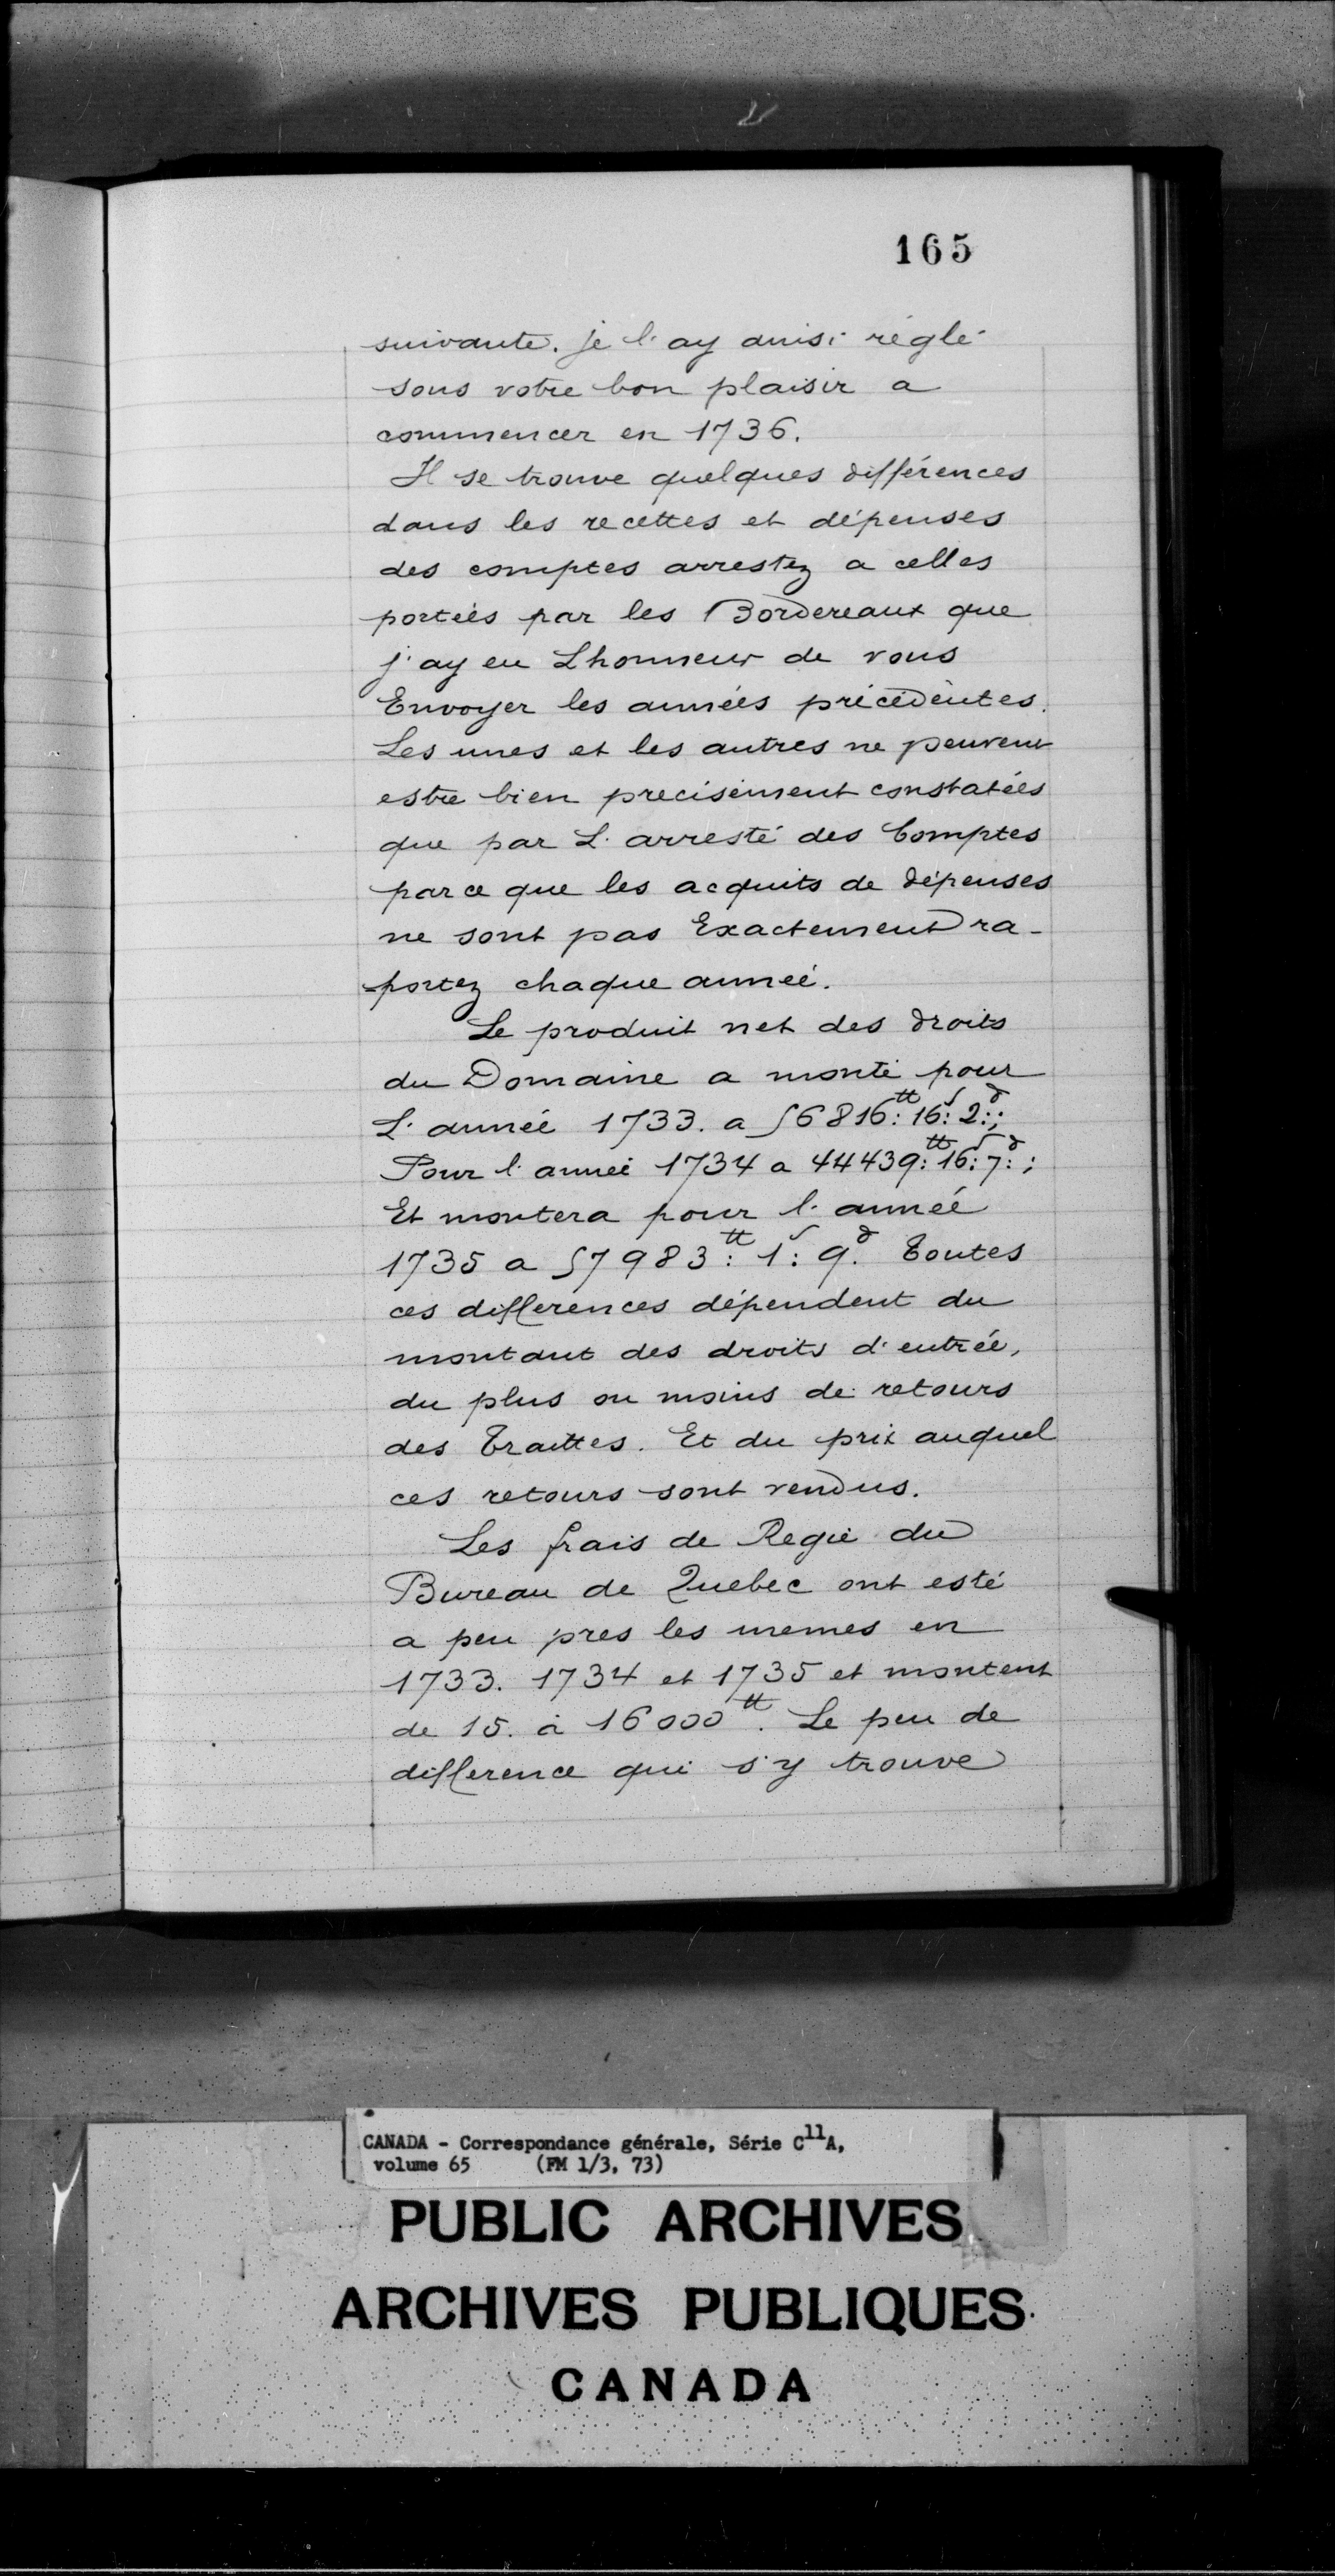 165
suivante. je l'ay ainsi réglé
sous votre bon plaisir a
commencer en 1736.
Il se trouve quelques différences
dans les recettes et dépenses
des comptes arrestez a celles
portées par les Bordereaux que
j'ay eu Lhonneur de vous
Envoyer les années précédentes.
Les unes et les autres ne peuvent
estre bien precisement constatées
que par L'arresté des Comptes
parce que les acquits de dépenses
ne sont pas Exactement ra-
-portez chaque année.
Le produit net des droits
du Domaine a monté pour
L'année 1733. a 56816:tt 16:s 2:d;
Pour l'année 1734 a 44439:tt 16:s 7:d;
Et montera pour l'année
1735 a 57983:tt 1:s 9.d Toutes
ces differences dépendent du
montant des droits d'entrée,
du plus ou moins de retours
des Traittes. Et du prix auquel
ces retours sont vendus.
Les frais de Regie du
Bureau de Quebec ont esté
a peu pres les memes en
1733. 1734 et 1735 et montent
de 15. à 16000tt. Le peu de
difference qui s'y trouve
CANADA - Correspondance générale, Série C11A,
volume 65 (FM 1/3, 73)
PUBLIC ARCHIVES
ARCHIVES PUBLIQUES
CANADA